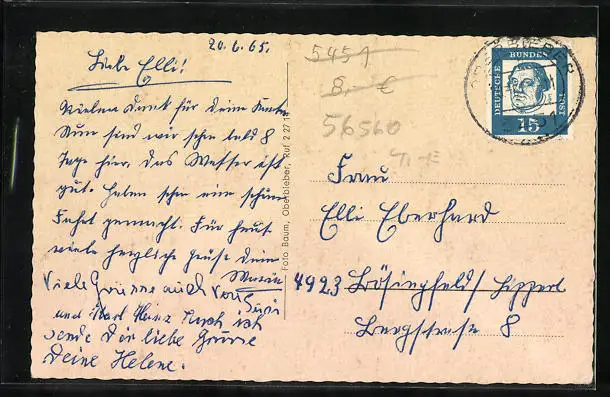 20.6.65.
Liebe Elli!
Vielen Dank für Deine Karte
Nun sind wir schon bald 8
Tage hier, das Wetter ist
gut. Haben schon eine schöne
Fahrt gemacht. Für heute
viele herzliche Grüße Deine
Viele Grüsse auch von Susi
und Karl Heinz Auch ich
sende Dir liebe Grüsse
Deine Helene.
Foto Baum, Oberbieber, Ruf 2 27 14
5451
8,- €
56560
DEUTSCHE
BUNDES
POST
15
Frau
Elli Eberhard
4923 Bösingfeld/Lipperl
Bergstrasse 8